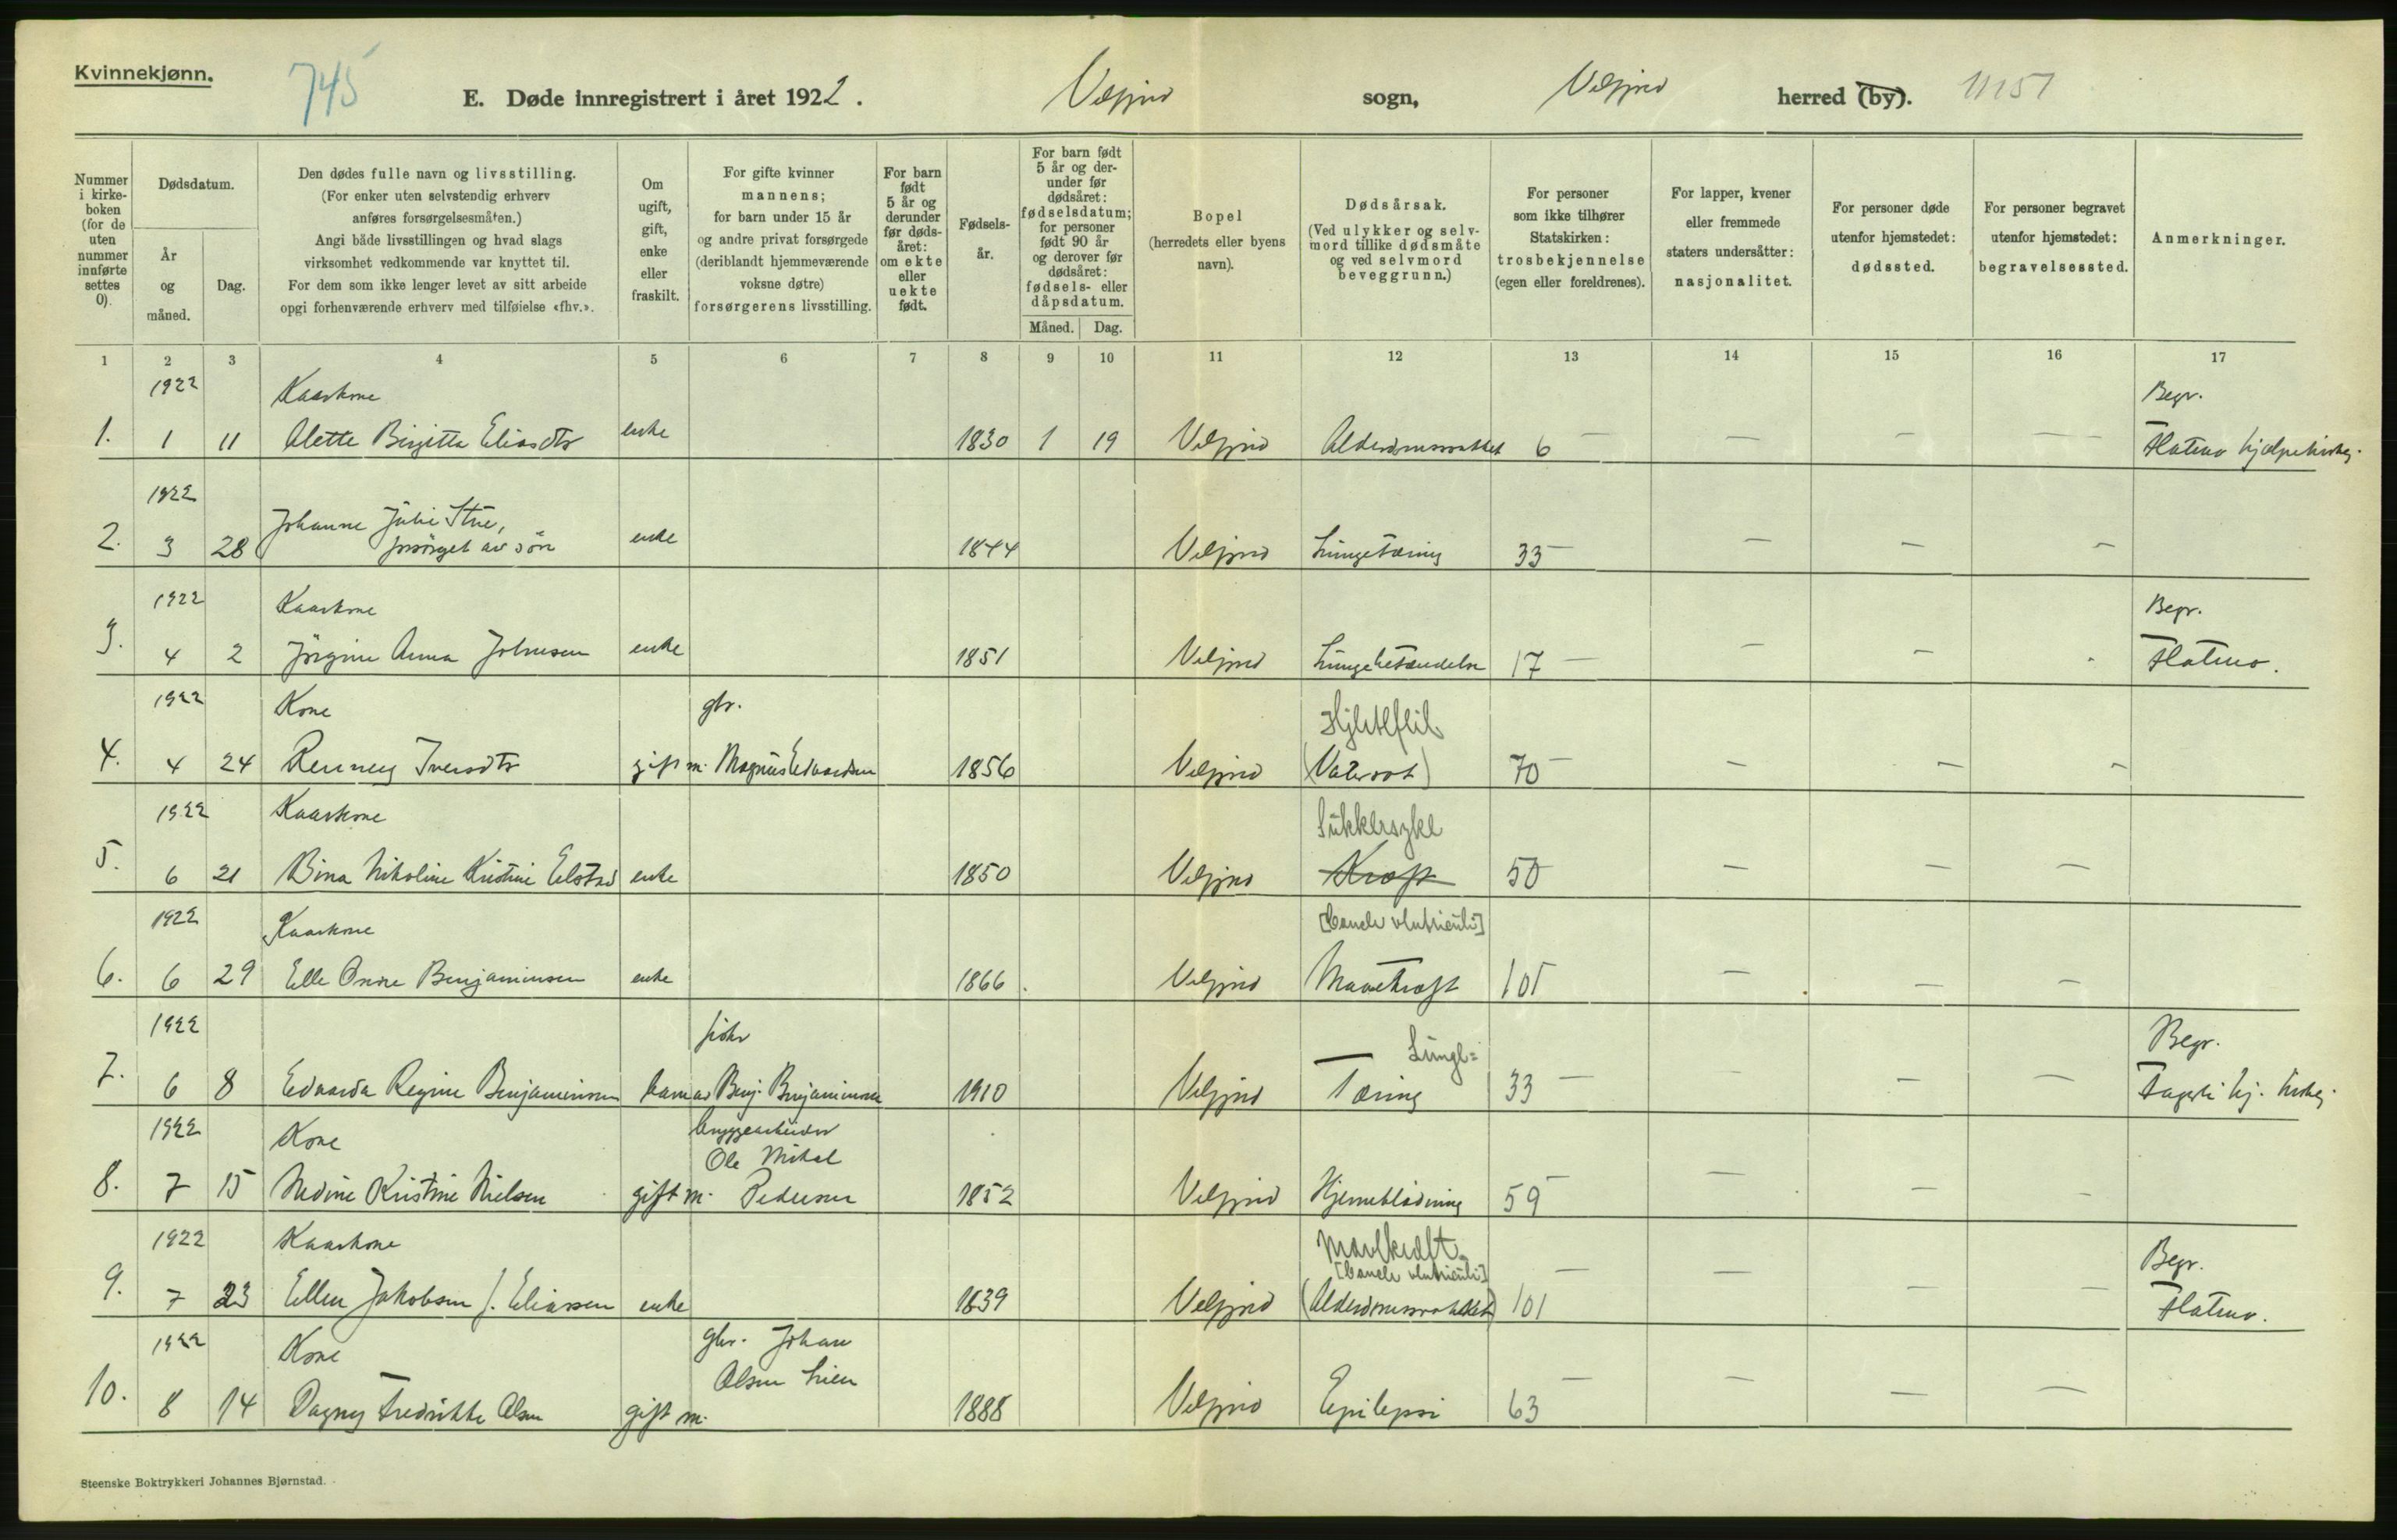 Kvinnekjønn.
745
E. Døde innregistrert i året 1922.
Velfjord sogn,
Velfjord herred (by).
Nummer i kirke-boken (for de uten nummer innførte settes 0).
Dødsdatum.
År og måned.
Dag.
Den dødes fulle navn og livsstilling.
(For enker uten selvstendig erhverv
anføres forsørgelsesmåten.)
Angi både livsstillingen og hvad slags
virksomhet vedkommende var knyttet til.
For dem som ikke lenger levet av sitt arbeide
opgi forhenværende erhverv med tilføielse «fhv.».
Om ugift, gift, enke eller fraskilt.
For gifte kvinner
mannens;
for barn under 15 år
og andre privat forsørgede
(deriblandt hjemmeværende
voksne døtre)
forsørgerens livsstilling.
For barn født 5 år og derunder før døds-året: om ekte eller uekte født.
Fødsels-år.
For barn født 5 år og der-under før dødsåret: fødselsdatum; for personer født 90 år og derover før dødsåret: fødsels- eller dåpsdatum.
Måned. Dag.
Bopel
(herredets eller byens
navn).
Dødsårsak.
(Ved ulykker og selv-
mord tillike dødsmåte
og ved selvmord
beveggrunn.)
For personer
som ikke tilhører
Statskirken:
trosbekjennelse
(egen eller foreldrenes).
For lapper, kvener
eller fremmede
staters undersåtter:
nasjonalitet.
For personer døde
utenfor hjemstedet:
dødssted.
For personer begravet
utenfor hjemstedet:
begravelsessted.
Anmerkninger.
1 2 3 4 5 6 7 8 9 10 11 12 13 14 15 16 17
1922 Kaarkone Begr.
1. 1 11 Alette Birgitta Eliasdtr enke 1830 1 19 Velfjord Alderdomssvakhet 6 — — — —
1922
Johanne Julie Stue,
2. 3 28 forsörget av sön enke 1844 Velfjord Lungetæring 33 — — — —
1922 Kaarkone Begr.
3. 4 2 Jörgine Anna Johnsen enke 1851 Velfjord Lungebetændelse 17 — — —
1922 Kone gbr. Hjertefeil
4. 4 24 Iversdtr gift m. Magnus Edvardsen 1856 Velfjord (Vatersot) 70 — — — —
1922 Kaarkone Sukkersyke
5. 6 21 Bina Nikoline Kristine Elstad enke 1850 Velfjord Kræft 50 — — —
1922 Kaarkone
6. 6 29 Elle Benjaminsen enke 1866 Velfjord Mavekræft 101 — — —
1922 Lunge= Begr.
7. 6 8 Edvarda Regine Benjaminsen barn av Benj. Benjaminsen 1910 Velfjord Tæring 33 — — — —
1922 Kone Bryggearbeider
Ole Mikal
8. 7 15 Nedine Kristine Nielsen gift m. Pedersen 1852 Velfjord Hjerneblödning 59 — — — —
1922 Kaarkone Mavekræft Begr.
9. 7 23 Ellen Jakobsen f. Eliassen enke 1839 Velfjord (Alderdomssvakhet) 101 — — — —
1922 Kone gbr. Johan
Olsen Lien
10. 8 14 Dagny Fredrikke Olsen gift m. 1888 Velfjord Epilepsi 63 — — — —
Steenske Boktrykkeri Johannes Bjørnstad.